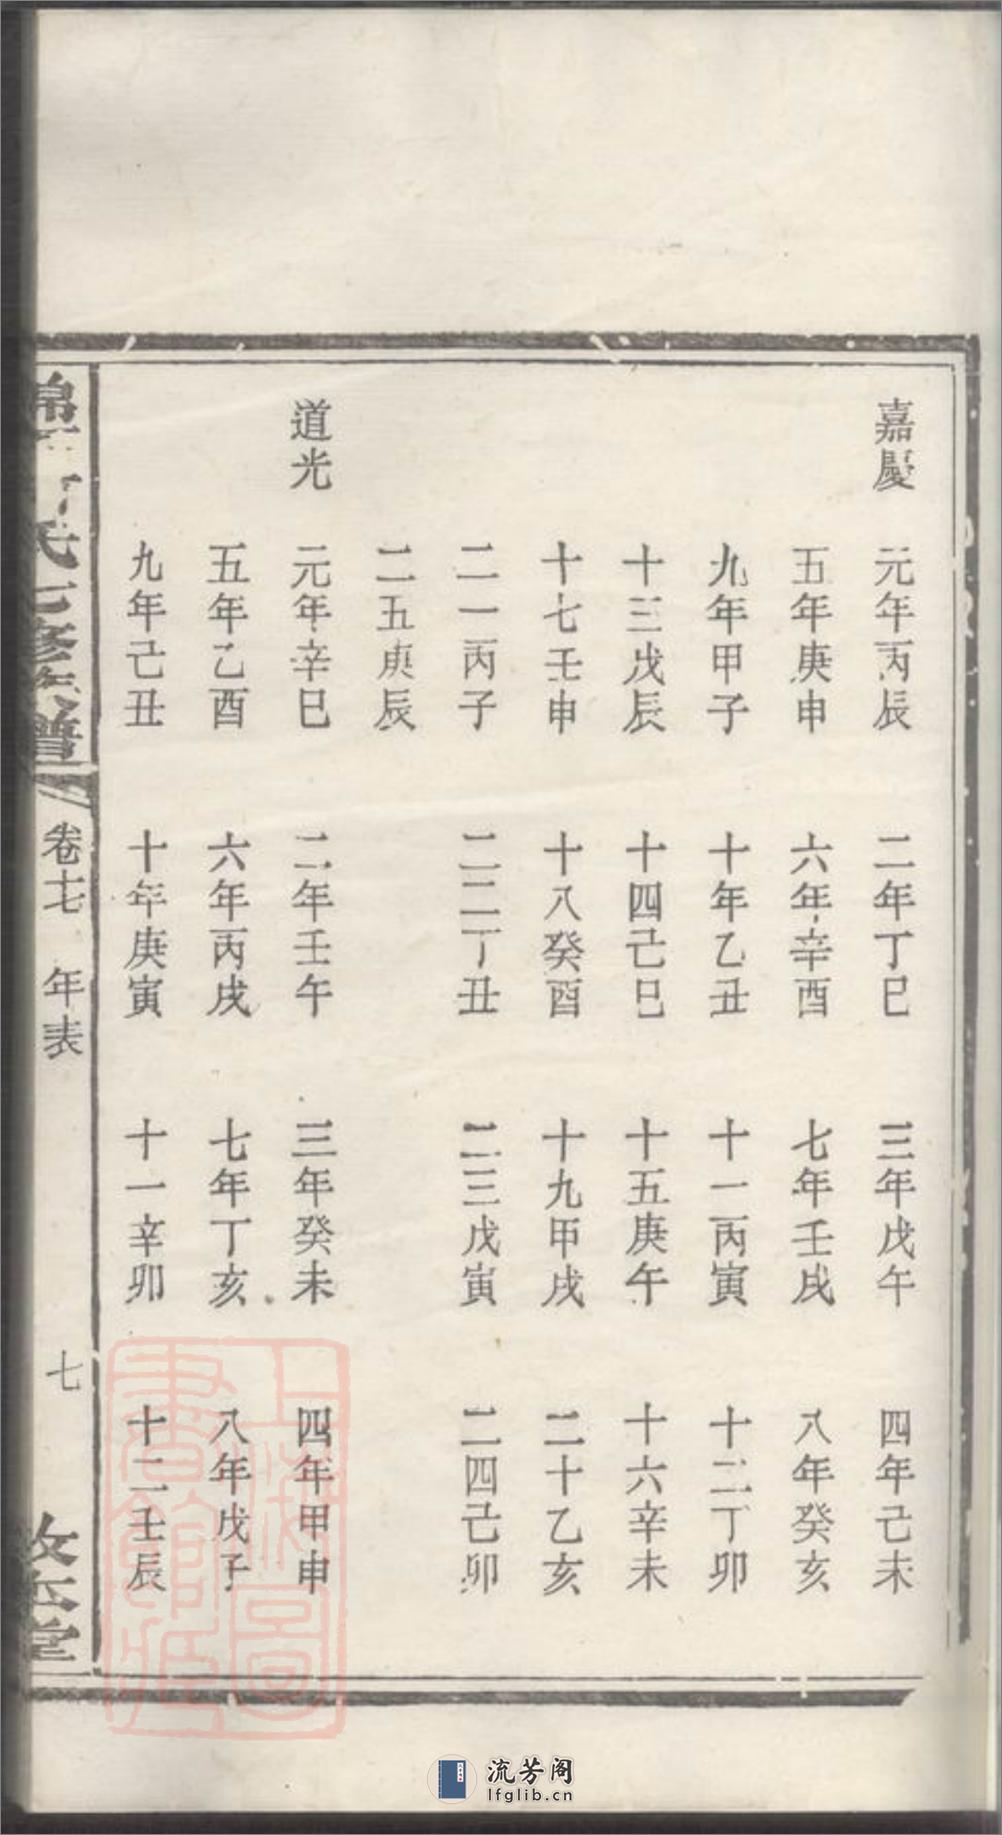 嘉慶 元年丙辰 二年丁巳 三年戊午 四年己未
五年庚申 六年辛酉 七年壬戌 八年癸亥
九年甲子 十年乙丑 十一丙寅 十二丁卯
十三戊辰 十四己巳 十五庚午 十六辛未
十七壬申 十八癸酉 十九甲戌 二十乙亥
二一丙子 二二丁丑 二三戊寅 二四己卯
二五庚辰
道光 元年辛巳 二年壬午 三年癸未 四年甲申
五年乙酉 六年丙戌 七年丁亥 八年戊子
九年己丑 十年庚寅 十一辛卯 十二壬辰
氏七修族譜 卷十七 年表 七 堂
上海圖書館藏
流芳阁
lfglib.cn